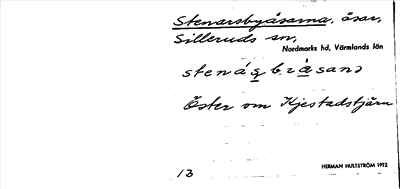 Stenarsbyåsarna, åsar,
Silleruds sn,
Nordmarks hd, Värmlands län
stenásbråsanɔ
Öster om Kjestadstjärn
13
HERMAN HULTSTRÖM 1912